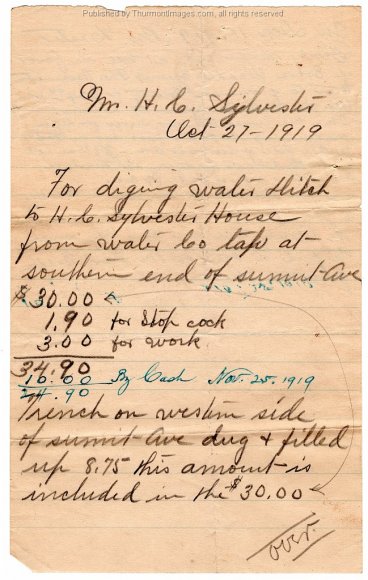 Published by ThurmontImages.com, all rights reserved
Mr. H. C. Sylvester
Oct 27-1919
For diging water ditch
to H. C. Sylvester House
from water Co tap at
southern end of summit Ave
$30.00
1.90 for Stop cock
3.00 for work
34.90
10.00 By Cash Nov. 25, 1919
24.90
Trench on western side
of summit Ave dug + filled
up 8.75 this amount is
included in the $30.00
over.